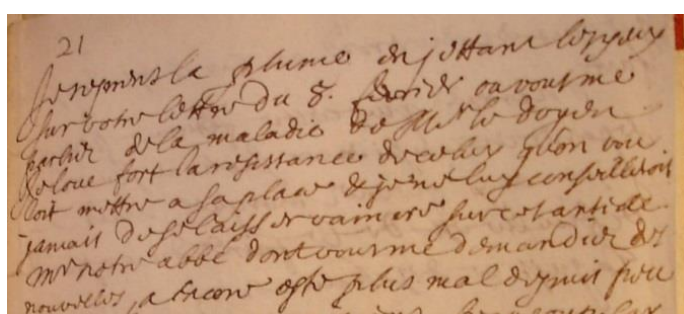 21
Je reprens la plume en jettant les yeux
sur votre lettre du 8. fevrier ou vous me
parlies de la maladie de Mr le doyen
Je loue fort la resistance de celuy qu'on vou
loit mettre a sa place & je ne luy conseillerois
jamais de se laisser vaincre sur cet article
mr notre abbé dont vous me demandies des
nouvelles a encore esté plus mal depuis peu